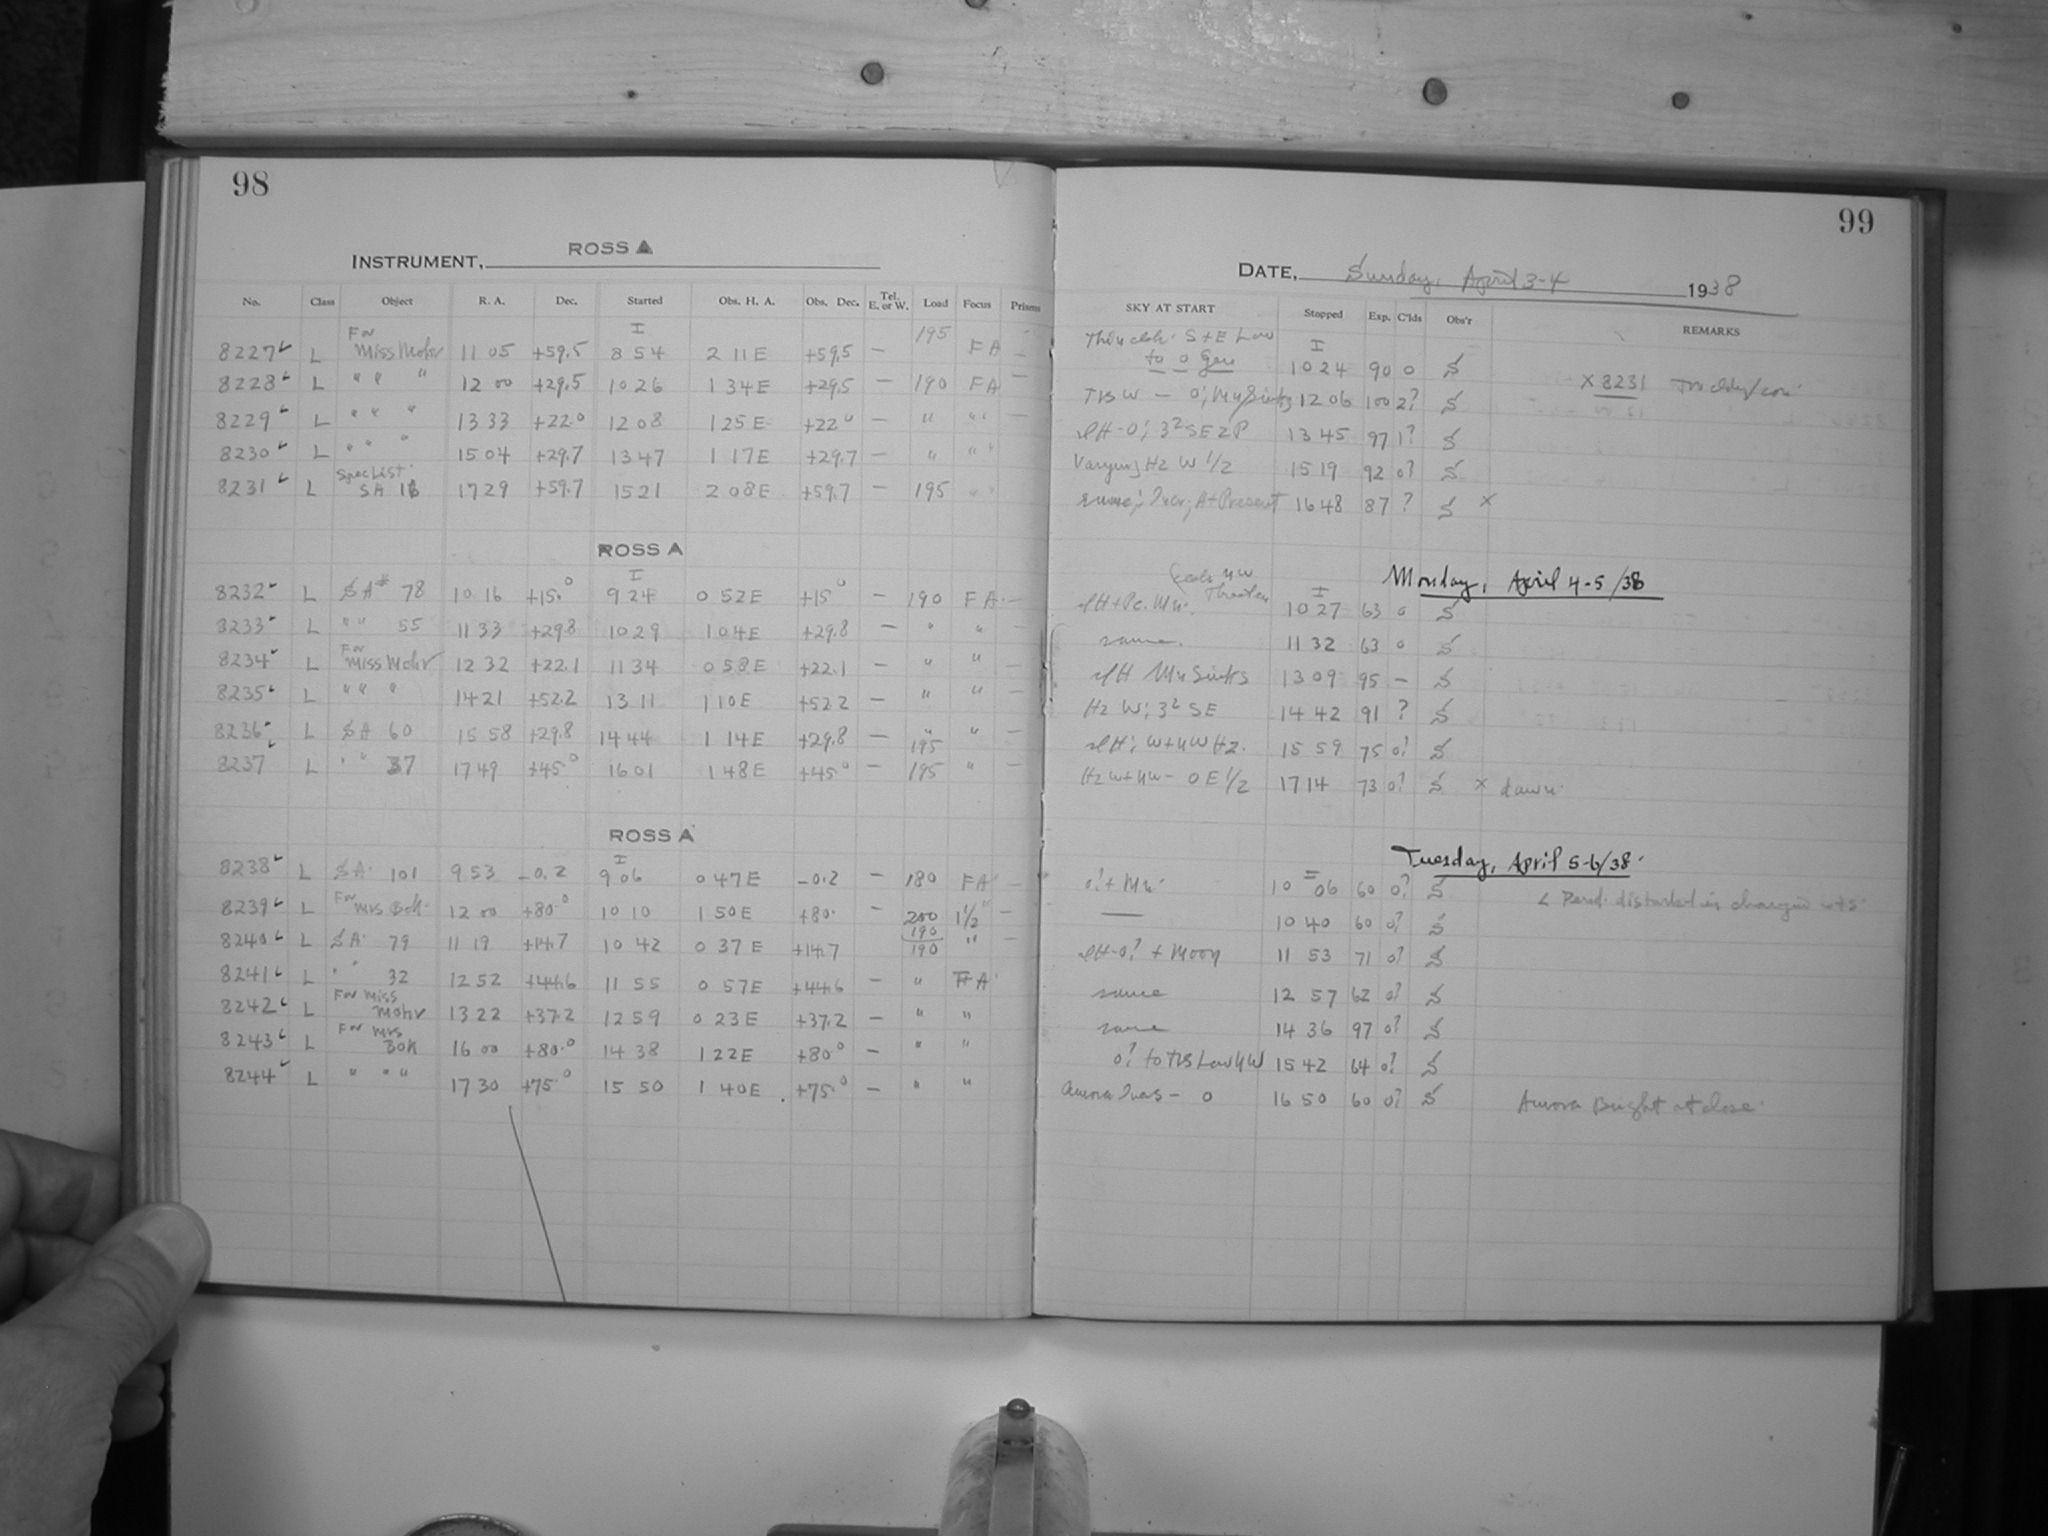 98
INSTRUMENT, ROSS A
No. Class Object R. A. Dec. Started Obs. H. A. Obs. Dec. Tel. E. or W. Load Focus Prisms
8227 L For Miss Mohr 11 05 +59.5 I 8 54 2 11 E +59.5 — 195 FA —
8228 L " " " 12 00 +29.5 10 26 1 34 E +29.5 — 190 FA —
8229 L " " " 13 33 +22.0 12 08 1 25 E +22.0 — " " " —
8230 L " " " 15 04 +29.7 13 47 1 17 E +29.7 — " " "
8231 L Spec List SA 18 17 29 +59.7 15 21 2 08 E +59.7 — 195 " "
ROSS A
I
8232 L SA# 78 10 16 +15.0 9 24 0 52 E +15.0 — 190 FA —
8233 L " " 55 11 33 +29.8 10 29 1 04 E +29.8 — " "
8234 L For Miss Mohr 12 32 +22.1 11 34 0 58 E +22.1 — " " —
8235 L " " " 14 21 +52.2 13 11 1 10 E +52.2 — " " —
8236 L SA 60 15 58 +29.8 14 44 1 14 E +29.8 — " 195 " —
8237 L " " 37 17 49 +45.0 16 01 1 48 E +45.0 — 195 " —
ROSS A
I
8238 L SA 101 9 53 -0.2 9 06 0 47 E -0.2 — 180 FA —
8239 L For Mrs Bok 12 00 +80.0 10 10 1 50 E +80. — 200 1 1/2 " —
8240 L SA 79 11 19 +14.7 10 42 0 37 E +14.7 190 190 " —
8241 L " " 32 12 52 +44.6 11 55 0 57 E +44.6 — " FA
8242 L For Miss Mohr 13 22 +37.2 12 59 0 23 E +37.2 — " "
8243 L For Mrs Bok 16 00 +80.0 14 38 1 22 E +80.0 — " "
8244 L " " " 17 30 +75.0 15 50 1 40 E +75.0 — " "
99
DATE, Sunday, April 3-4 1938
SKY AT START Stopped Exp. C'lds Obs'r REMARKS
S+E Low to 0 Gen I 10 24 90 0 S
X 8231
W — 0; Mn Sinks 12 06 100 2? S
3² SE 2P 13 45 97 1? S
Varying Hz W 1/2 15 19 92 0? S
same; A+Present 16 48 87 ? S X
Monday, April 4-5/38
I 10 27 63 0 S
same. 11 32 63 0 S
Mn Sinks 13 09 95 — S
Hz W; 3² SE 14 42 91 ? S
W+NW Hz. 15 59 75 0? S
Hz W+NW — 0 E 1/2 17 14 73 0? S X dawn
Tuesday, April 5-6/38
0?+Mn I 10 06 60 0? S
Pend. disturbed in changing wts.
— 10 40 60 0? S
0? + Moon 11 53 71 0? S
same 12 57 62 0? S
same 14 36 97 0? S
0? to Low NW 15 42 64 0? S
Aurora — 0 16 50 60 0? S Aurora Bright at close.